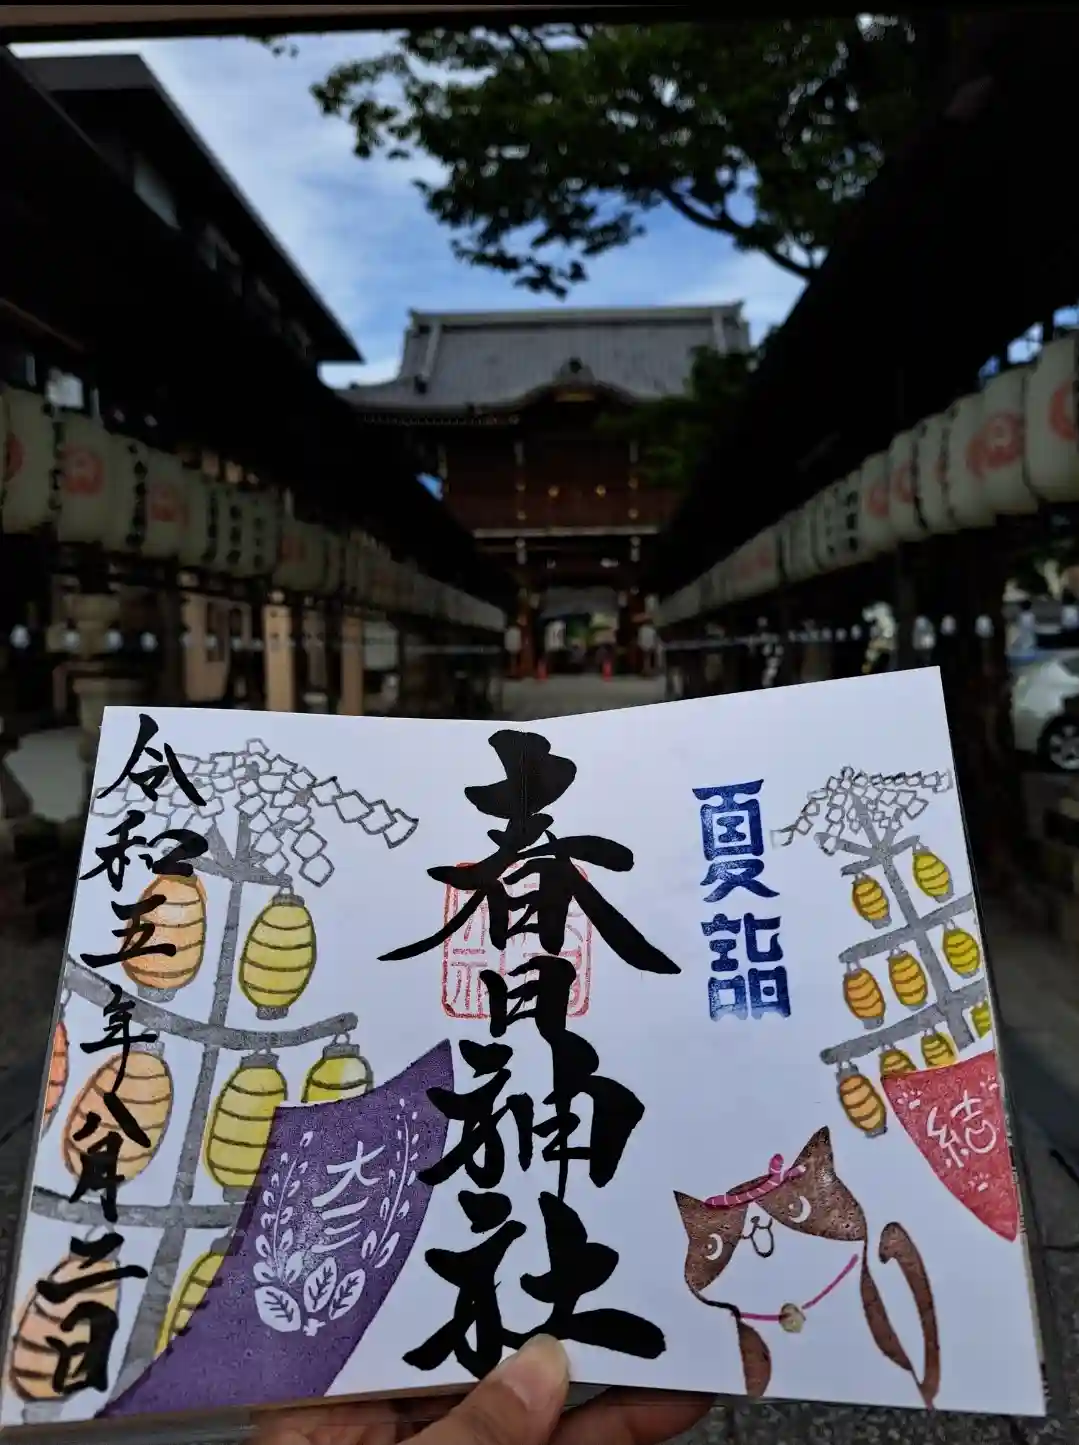 夏詣
結
春日神社
大三
令和五年八月二日